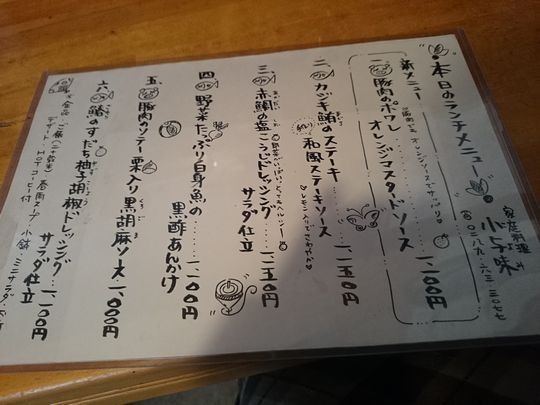 本日のランチメニュー
家庭料理
小でまり味
☎〇二八九・六三・三〇七七
新メニュー
一、豚肉のポワレ
オレンジマスタードソース 一、二〇〇円
二、カジキ鮪のステーキ
和風ステーキソース 一、一五〇円
三、赤鯛の塩こうじドレッシング
サラダ仕立 一、一五〇円
四、野菜たっぷり白身魚の
黒酢あんかけ 一、一〇〇円
五、豚肉のソテー栗入り黒胡麻ソース 一、一〇〇円
六、鮪のすだち柚子胡椒ドレッシング
サラダ仕立 一、一〇〇円
全品 ご飯(二十穀米) 春雨スープ 小鉢 ミニサラダ
デザート HOTコーヒー付